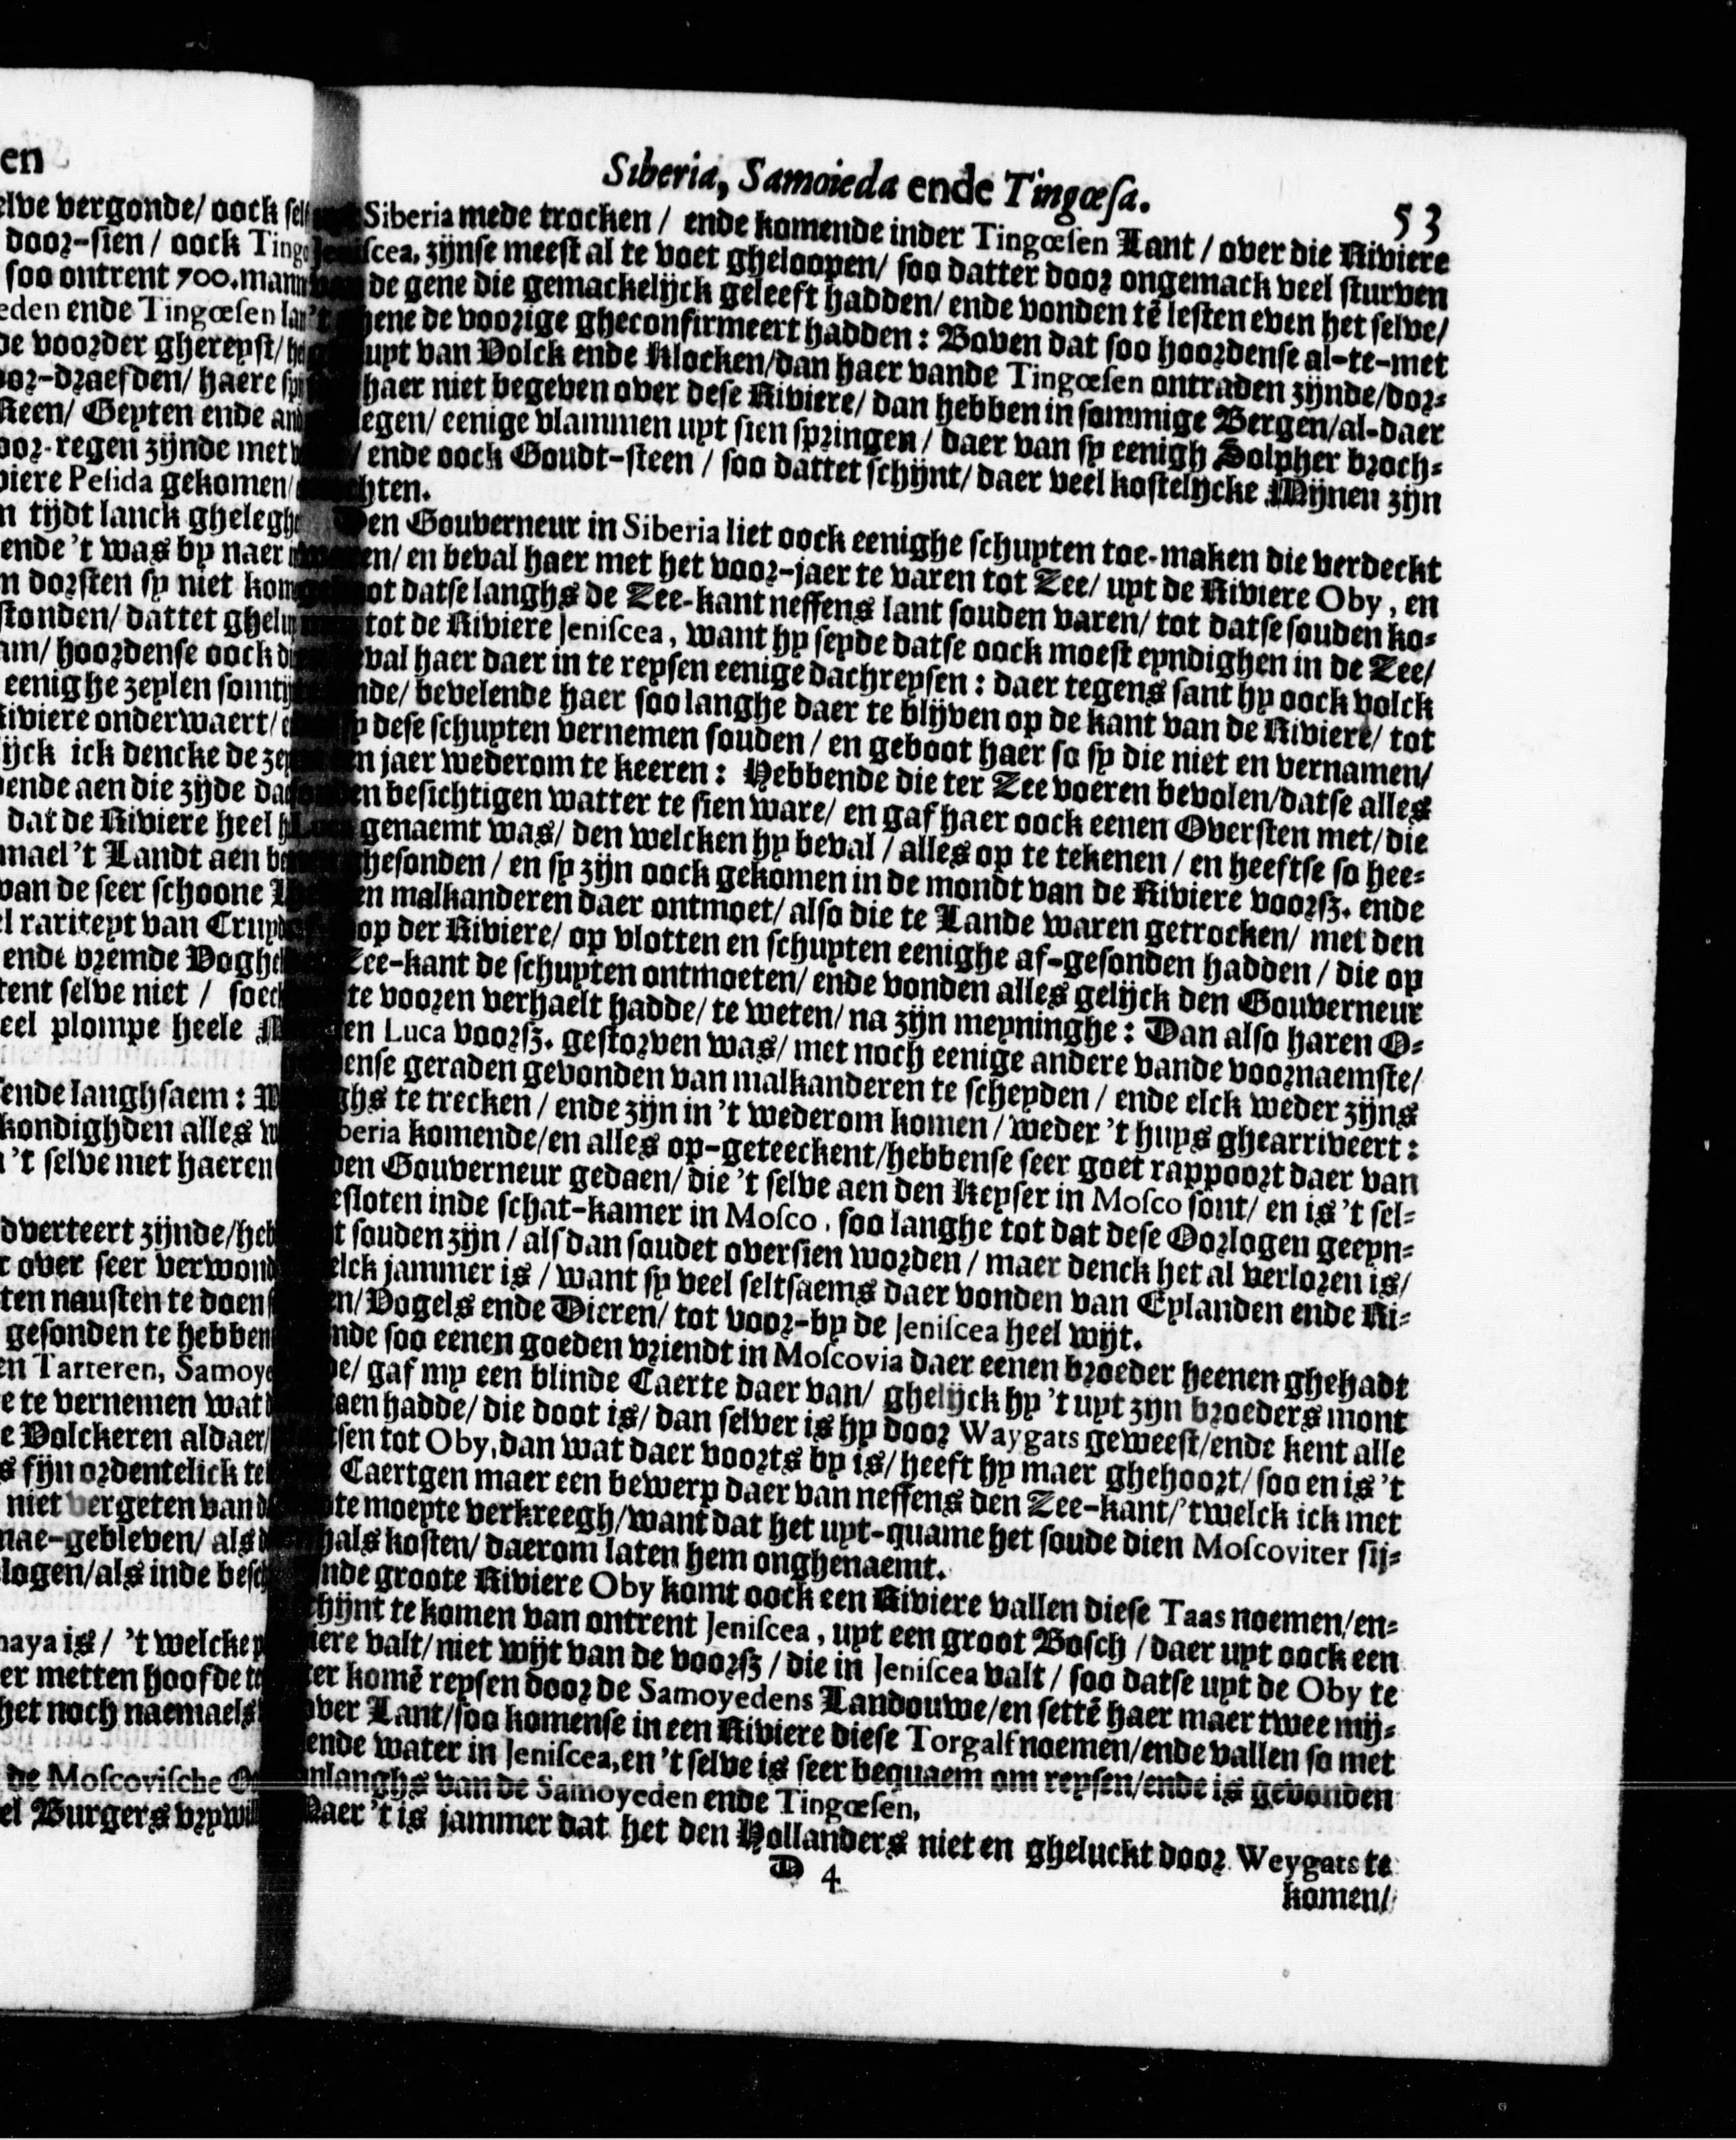 en
elve vergonde/ oock sel
door-sien/ oock Tingo
soo ontrent 700. mann
eden ende Tingœsen lan
de voorder ghereyst/ he
oor-draefden/ haere spr
Reen/ Geyten ende and
oor-regen zijnde met
viere Pesida gekomen/
n tijdt lanck gheleghe
ende 't was by naer
n dorsten sy niet kom
stonden/ dattet ghelup
am/ hoordense oock di
eenighe zeylen somtij
Riviere onderwaert/
ijck ick dencke de zey
dende aen die zijde dae
dat de Riviere heel h
mael 't Landt aen be
van de seer schoone
el rariteyt van Cruyd
ende vremde Voghe
tent selve niet / soeck
eel plompe heele
ende langhsaem: M
kondighden alles w
't selve met haeren
dverteert zijnde/heb
r over seer verwond
ten nausten te doen
gesonden te hebben
en Tarteren, Samoye
e te vernemen wat
e Volckeren aldaer/
s sijn ordentelick te
niet vergeten van d
nae-gebleven/ als
logen/als inde besch
naya is/ 't welcke
er metten hoofde te
het noch naemaels
de Moscovische
el Burgers vrywil
Siberia, Samoieda ende Tingœsa.
53
Siberia mede trocken / ende komende inder Tingœsen Lant / over die Riviere
Jeniscea, zijnse meest al te voet gheloopen/ soo datter door ongemack veel sturven
de gene die gemackelijck geleeft hadden/ ende vonden tē lesten even het selve/
't ghene de voorige gheconfirmeert hadden: Boven dat soo hoordense al-te-met
uyt van Volck ende Klocken/dan haer vande Tingœsen ontraden zijnde/dor-
haer niet begeven over dese Riviere/ dan hebben in sommige Bergen/al-daer
egen/ eenige vlammen uyt sien springen / daer van sy eenigh Solpher broch-
/ ende oock Goudt-steen / soo dattet schijnt/ daer veel kostelijcke Mijnen zijn
chten.
Den Gouverneur in Siberia liet oock eenighe schuyten toe-maken die verdeckt
en/ en beval haer met het voor-jaer te varen tot Zee/ uyt de Riviere Oby, en
ot datse langhs de Zee-kant neffens lant souden varen/ tot datse souden ko-
tot de Riviere Jeniscea, want hy seyde datse oock moest eyndighen in de Zee/
val haer daer in te reysen eenige dachreysen: daer tegens sant hy oock volck
nde/ bevelende haer soo langhe daer te blijven op de kant van de Riviere/ tot
sy dese schuyten vernemen souden / en geboot haer so sy die niet en vernamen/
en jaer wederom te keeren: Hebbende die ter Zee voeren bevolen/datse alles
den besichtigen watter te sien ware/ en gaf haer oock eenen Oversten met/die
genaemt was/ den welcken hy beval / alles op te tekenen / en heeftse so hee-
ghesonden / en sy zijn oock gekomen in de mondt van de Riviere voorsz. ende
en malkanderen daer ontmoet/ also die te Lande waren getrocken/ met den
op der Riviere/ op vlotten en schuyten eenighe af-gesonden hadden / die op
Zee-kant de schuyten ontmoeten/ ende vonden alles gelijck den Gouverneur
te vooren verhaelt hadde/ te weten/ na zijn meyninghe: Dan also haren O-
en Luca voorsz. gestorven was/ met noch eenige andere vande voornaemste/
ense geraden gevonden van malkanderen te scheyden / ende elck weder zijns
ghs te trecken / ende zijn in 't wederom komen / weder 't huys ghearriveert:
beria komende/en alles op-geteeckent/hebbense seer goet rappoort daer van
den Gouverneur gedaen/ die 't selve aen den Keyser in Mosco sont/ en is 't sel-
esloten inde schat-kamer in Mosco, soo langhe tot dat dese Oorlogen geeyn-
t souden zijn / als dan soudet oversien worden / maer denck het al verloren is/
elck jammer is / want sy veel seltsaems daer vonden van Eylanden ende Ri-
en/ Vogels ende Dieren/ tot voor-by de Jeniscea heel wijt.
nde soo eenen goeden vriendt in Moscovia daer eenen broeder heenen ghehadt
de/ gaf my een blinde Caerte daer van/ ghelijck hy 't uyt zijn broeders mont
aen hadde/ die doot is/ dan selver is hy door Waygats geweest/ende kent alle
sen tot Oby, dan wat daer voorts by is/ heeft hy maer ghehoort/ soo en is 't
Caertgen maer een bewerp daer van neffens den Zee-kant/'twelck ick met
ote moeyte verkreegh/want dat het uyt-quame het soude dien Moscoviter sij-
hals kosten/ daerom laten hem onghenaemt.
nde groote Riviere Oby komt oock een Riviere vallen diese Taas noemen/en-
chijnt te komen van ontrent Jeniscea, uyt een groot Bosch / daer uyt oock een
iere valt/niet wijt van de voorsz / die in Jeniscea valt / soo datse uyt de Oby te
ter komē reysen door de Samoyedens Landouwe/en settē haer maer twee mij-
over Lant/soo komense in een Riviere diese Torgalf noemen/ende vallen so met
ende water in Jeniscea, en 't selve is seer bequaem om reysen/ende is gevonden
onlanghs van de Samoyeden ende Tingœsen,
Maer 't is jammer dat het den Hollanders niet en gheluckt door Weygats te
D 4
komen/